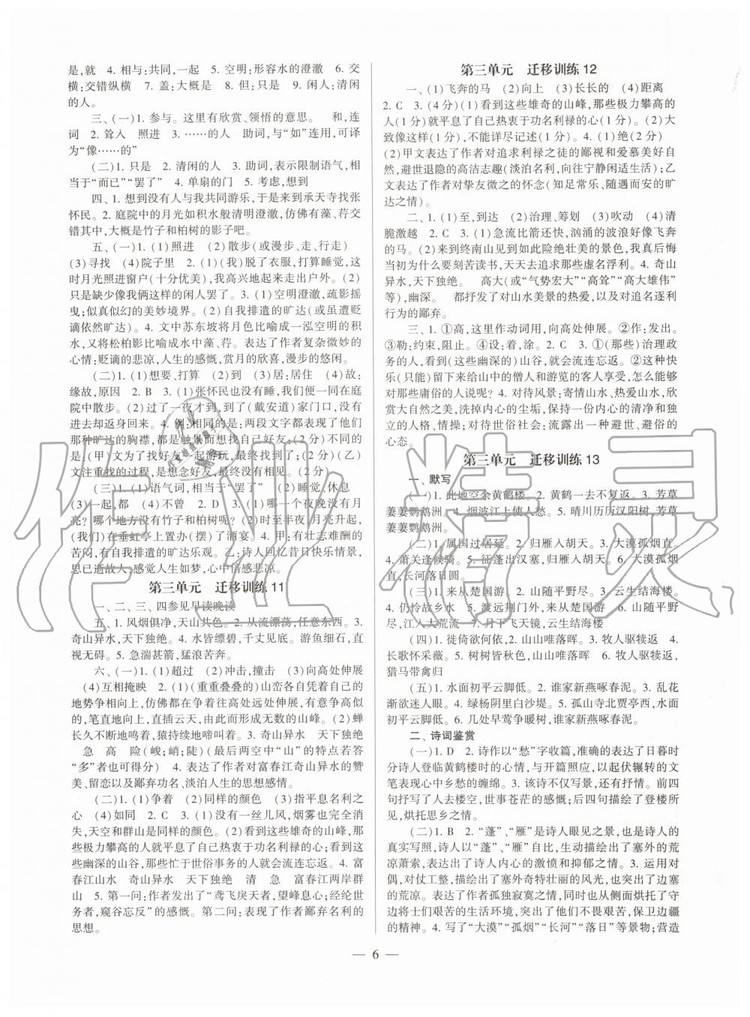 是,就 4. 相与;共同,一起 5. 空明;形容水的澄澈 6. 交
横;交错纵横 7. 盖;大概是 8. 但;只是 9. 闲人;清闲
的人。
三、(一)1. 参与。这里有欣赏、领悟的意思。 和,连
词 2. 耸入 照进 3. ……的人 助词,与“如”连用,可译
为“像……的”
(二)1. 只是 2. 清闲的人 3. 助词,表示限制语气,相
当于“而已”“罢了” 4. 单扇的门 5. 考虑,想到
四、1. 想到没有和我共同游乐,于是来到承天寺找张
怀民。 2. 庭院中的月光如积水般清澄澈,仿佛有藻、荇交
错其中,大概是竹子和柏树的影子吧。
五、(一)1. (1)照进 (2)散步(或漫步、走、行走)
(3)寻找 (4)了 2. (1)(我)脱了衣服,打算睡觉,这
时月光照进窗户(十分优美),我高兴地起来走出户外。(2)
只是缺少像我俩这样的闲人罢了。 3. (1)空明澄澈,疏影摇
曳;似真似幻的美妙境界。(2)自我排遣的旷达(或虽遭贬
谪依然旷达) 4. 文中苏东坡将月色比喻成一泓空明的积
水,又将松柏影比喻成水中藻、荇。表达了作者复杂微妙的
心情;贬谪的悲凉,人生的感慨,赏月的欣喜,漫步的悠闲。
(二)1. (1)想要、打算 (2)到 (3)居;居住 (4)故;
缘故,原因 2. B 3. (1)张怀民也没有睡,我们便一同在庭
院中散步。(2)过了一夜才到,到了(戴安道)家门口,没有
进去却返身回来。 4. (1)相同的是;两段文字都表现了他们
那种旷达的胸襟,都是忽然间想到找自己好友;(2)不同的
是,(甲)文为了找好友一起赏月,表现出很闲适的心情;(乙)
文注重找的过程,是想看朋友,却没有看。
(三)1. (1)语气词,相当于“罢了” (2)睡觉,休息
(3)却 (4)共同 (5)不曾 2. (1)哪一个夜晚没有月
亮?哪个地方没有竹子和柏树呢?(2)半夜时 月亮升起,
(我们)在垂虹亭上置办(摆了)酒宴。 4. 甲:有壮志难酬的
苦闷,有自我排遣的旷达乐观。乙:诗人回忆昔日快乐情景,
思已逝故人,感慨万千,心中倍感悲凉。
第三单元 迁移训练11
一、二、三、四参见早读晚读
五、1. 风烟俱净,天山共色。 2. 从流飘荡,任意东西。 3.
奇山异水,天下独绝。 4. 水皆缥碧,千丈见底。游鱼细石,直
视无碍。 5. 急湍甚箭,猛浪若奔。
六、(一)1. (1)超过 (2)冲击,撞击 (3)向高处伸展
(4)互相掩映 2. (1)(重重叠叠的)山峦各自凭借自己的
地势争相向上,仿佛都在往高处远处伸展,群山竞争着高
耸,笔直地向上,直插云天,由此而形成无数的山峰。(2)蝉
长久不断地鸣叫,猿持续地啼叫着。 3. 奇山异水 天下独绝
急 高 险(峻;峭;陡)(最后两空中“山”的特点若答
“多”者也可得分) 4. 表达了作者对富春江山水美景的赞
美、留恋以及鄙弃功名、淡泊人生的思想感情。
(二)1. (1)争着 (2)同样的颜色 (3)指平息名利之
心 (4)阳光 2. (1)没有一丝儿风,烟雾也完全消
失,天空和群山是同样的颜色。(2)看到这些雄奇的山峰,人
们就会平息了自己热衷于功名利禄的心;看到
这些幽深的山谷,那些忙于世俗事务的人就会流连忘返。 3.
富春江山水 奇山异水 天下独绝 异水 富春江两岸群
山 5. 第一问:作者发出了“鸢飞戾天者,望峰息心;经纶世
务者,窥谷忘反”的感慨。第二问:表现了作者鄙弃名利的
思想。
第三单元 迁移训练12
一、(1)飞奔的马 (2)向上 (3)长长的 (4)距离
2. C 3. (4分)(1)看到这些雄奇的山峰,那些极力攀高的
人(1分)就平息了自己热衷于功名利禄的心(1分)。(2)大
致像这样(1分),不能详尽记述(1分)。 4. (1)(2分)
(2)甲文表达了作者对追求利禄之徒的鄙视和爱慕美好大自
然,避世退隐的高洁志趣(淡泊名利,向往宁静闲适生活);乙
文表达了作者对挚友微之的怀念(知足常乐、随遇而安的旷
达之情)。
二、1. (1)至,到达 (2)治理、筹划 (3)吹动 (4)清
脆激越 2. C 3. (2)急流比箭还快,汹涌的波浪好像飞奔
的马。(2)来到终南山见到如此险绝壮美的景色,我真后悔
当初为什么要刻苦读书,天天去追逐那些虚名浮利。 4. 奇山
异水,天下独绝。 高大(或“气势宏大”“高耸”“高大雄伟”
等),幽深。 都抒发了对山水美景的热爱,以及对追名逐利
行为的鄙弃。
三、1. ①高。这里作动词用,向高处伸展。②作;发出。
③上。④同“返”,返回。 2. C 3. ①(那些)治理政务
的人,看到(这些幽深的)山谷,就会流连忘返。②这种快
乐(只能)留下来给山中的僧人和游览的客人享受,怎么能够
对那些庸俗的人说呢? 4. 对待风景:寄情山水,热爱山水,欣
赏大自然之美,洗掉内心的尘垢,保持一份内心的清净和独
立的人格、情操;对待世俗社会:流露出一种避世、避俗的
心态。
第三单元 迁移训练13
一、默写
(一)1. 此地空余黄鹤楼。 2. 黄鹤一去不复返。 3. 芳草
萋萋鹦鹉洲。 4. 烟波江上使人愁。 5. 晴川历历汉阳树。芳草
萋萋鹦鹉洲。
(二)1. 属国过居延。 2. 归雁入胡天。 3. 大漠孤烟直。
4. 萧关逢候骑。 5. 征蓬出汉塞,归雁入胡天。 6. 大漠孤烟
直,长河落日圆。
(三)1. 来从楚国游 2. 来从楚国游 3. 云生结海楼
4. 仍怜故乡水 5. 山随平野尽,江入大荒流 6. 山随平野
尽,江入大荒流。 7. 月下飞天镜,云生结海楼
(四)1. 徙倚欲何依。 2. 山山唯落晖。 3. 牧人驱犊返 4.
长歌怀采薇。 5. 树树皆秋色,山山唯落晖。 6. 牧人驱犊返,
猎马带禽归
(五)1. 水面初平云脚低。 2. 谁家新燕啄春泥。 3. 乱花
渐欲迷人眼。 4. 绿杨阴里白沙堤。 5. 孤山寺北贾亭西,水
面初平云脚低。 6. 几处早莺争暖树,谁家新燕啄春泥。
二、诗词鉴赏
(一)1. D 2. 诗作以“愁”字收篇,准确的表达了日暮时
分诗人登临黄鹤楼的心情,同时又和开篇的以起伏辗转的文
笔表现心中乡愁的缠绵。 3. 该诗不仅写景,还写情。前四
句抒写了人去楼空,世事苍茫的感慨;后四句描绘了登楼所
见,烘托思乡之情。
(二)1. B 2. “蓬”、“雁”是诗人眼见之景,也是诗人的
真实写照,诗人以“蓬”、“雁”自比,准确的描绘出了塞外的荒
凉萧索,表达出诗人内心的激愤和抑郁之情。 3. 运用对
偶,对仗工整,描绘了塞外奇特壮丽的风光,也突出了塞外的
荒凉。表达了作者孤独寂寞之情,同时,也烘托出了守
边将士们的生活环境,突出了他们不畏艰苦,保卫边疆
的精神。 4. 写了“大漠”“孤烟”“长河”“落日”等景物;营造
— 6 —
作业精灵